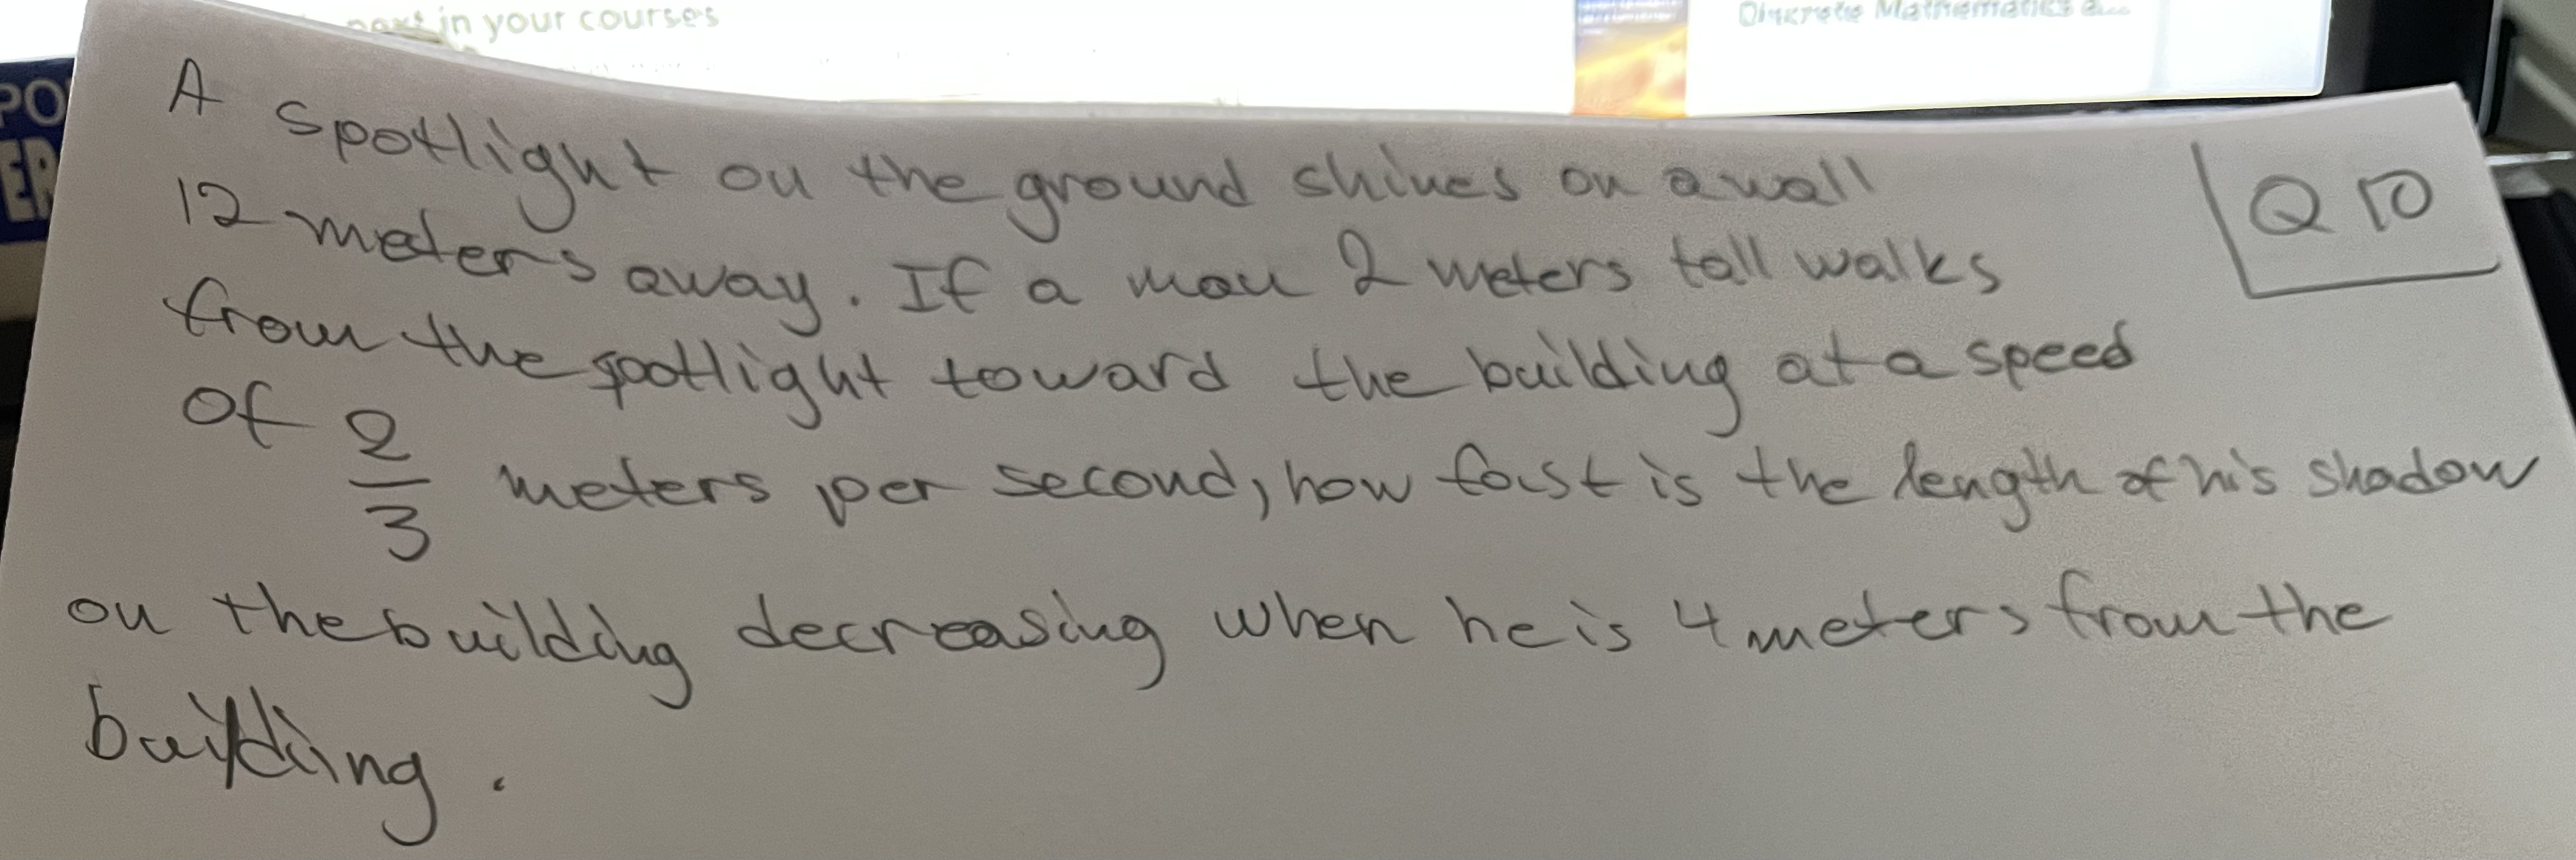 next in your courses
Discrete Mathematics a...
PO
ER
A spotlight on the ground shines on a wall
12 meters away. If a man 2 meters tall walks
from the spotlight toward the building at a speed
of 2/3 meters per second, how fast is the length of his shadow
on the building decreasing when he is 4 meters from the
building.
Q 10